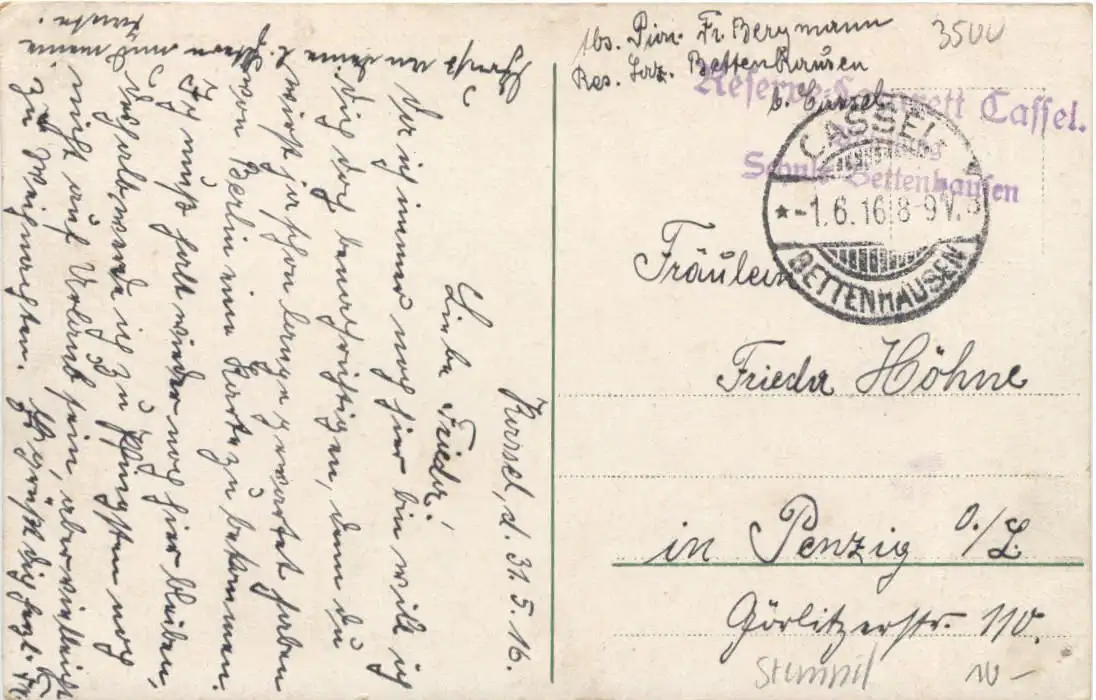 Kassel, d. 31.5.16.
Liebe Frieda!
Da ich immer noch hier bin will ich
dig doch benachrichtigen, denn du
wirst ja schon lange gewartet haben
von Berlin eine Karte zu bekommen.
Ich muß halt wieder noch hier bleiben,
deshalb werde ich zu Pfingsten noch
nicht auf Urlaub sein, aber vielleicht
zu Weihnachten. Es grüßt dich herzl. Fr.
Gruß an deine l. Eltern und meine
Abs. Pion. Fr. Bergmann
Res. Laz. Bettenhausen
b. Cassel
3500
Reserve-Lazarett Cassel.
Abteilung
Schule Bettenhausen
CASSEL
* -1.6.16.8-9V.
BETTENHAUSEN
Fräulein
Frieda Höhne
in Penzig O./L.
Görlitzerstr. 110.
Stempel
10-